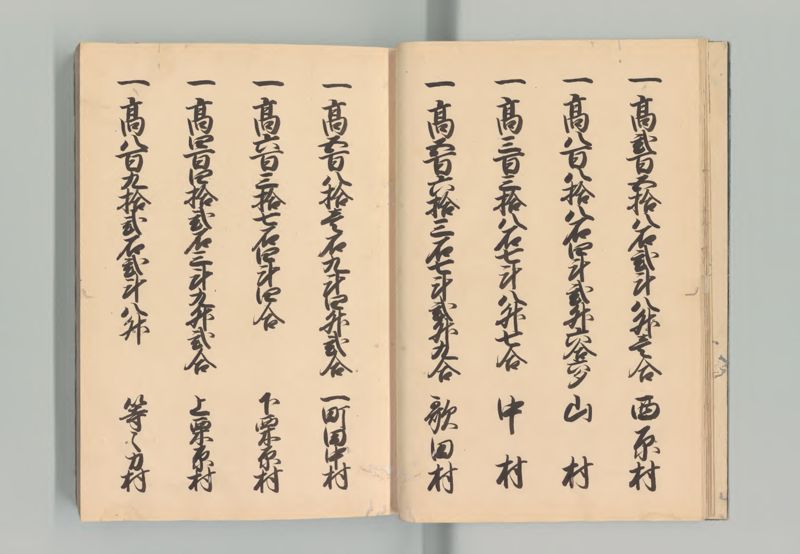 一高弐百六拾八石弐斗八升壱合 西原村
一高八百八拾八石四斗弐升六合六夕 山村
一高三百三拾八石七斗八升七合 中村
一高五百六拾三石七斗弐升九合 歌田村
一高五百八拾壱石九斗四升弐合 一町田中村
一高六百三拾七石四斗四合 下栗原村
一高四百四拾弐石三斗九升弐合 上栗原村
一高八百九拾弐石弐斗八升 等々力村